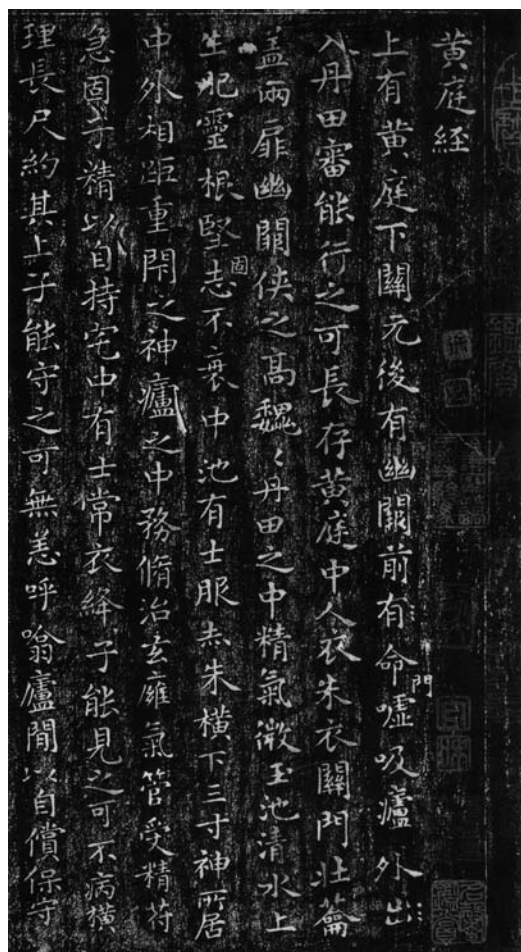 黄庭經
上有黄庭下關元後有幽闕前有命門噓吸廬外出
入丹田審能行之可長存黄庭中人衣朱衣關門壯籥
蓋兩扉幽闕俠之高魏〻丹田之中精氣微玉池清水上
生肥靈根堅固志不衰中池有士服赤朱橫下三寸神所居
中外相距重閇之神廬之中務脩治玄癰氣管受精苻
急固子精以自持宅中有士常衣絳子能見之可不病橫
理長尺約其上子能守之可無恙呼噏廬間以自償保守